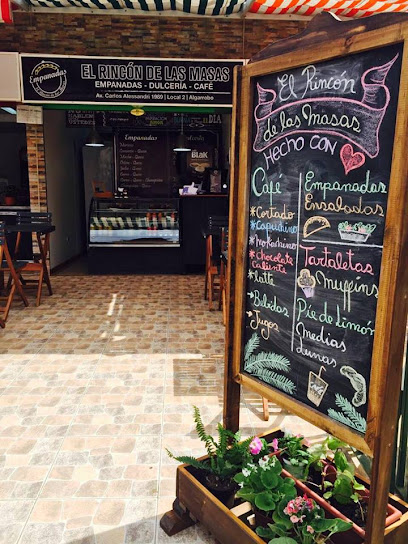 Empanadas
EL RINCÓN DE LAS MASAS
EMPANADAS - DULCERÍA - CAFÉ
Av. Carlos Alessandri 1969 | Local 2 | Algarrobo
Empanadas
BLaK
DIA
El Rincón
de las Masas
HECHO CON
Café
*Cortado
*Capuchino
*Mokachino
*chocolate
Caliente
*latte
*Bebidas
*Jugos
Empanadas
Ensaladas
Tartaletas
Muffins
Pie de Limón
Medias
Lunas